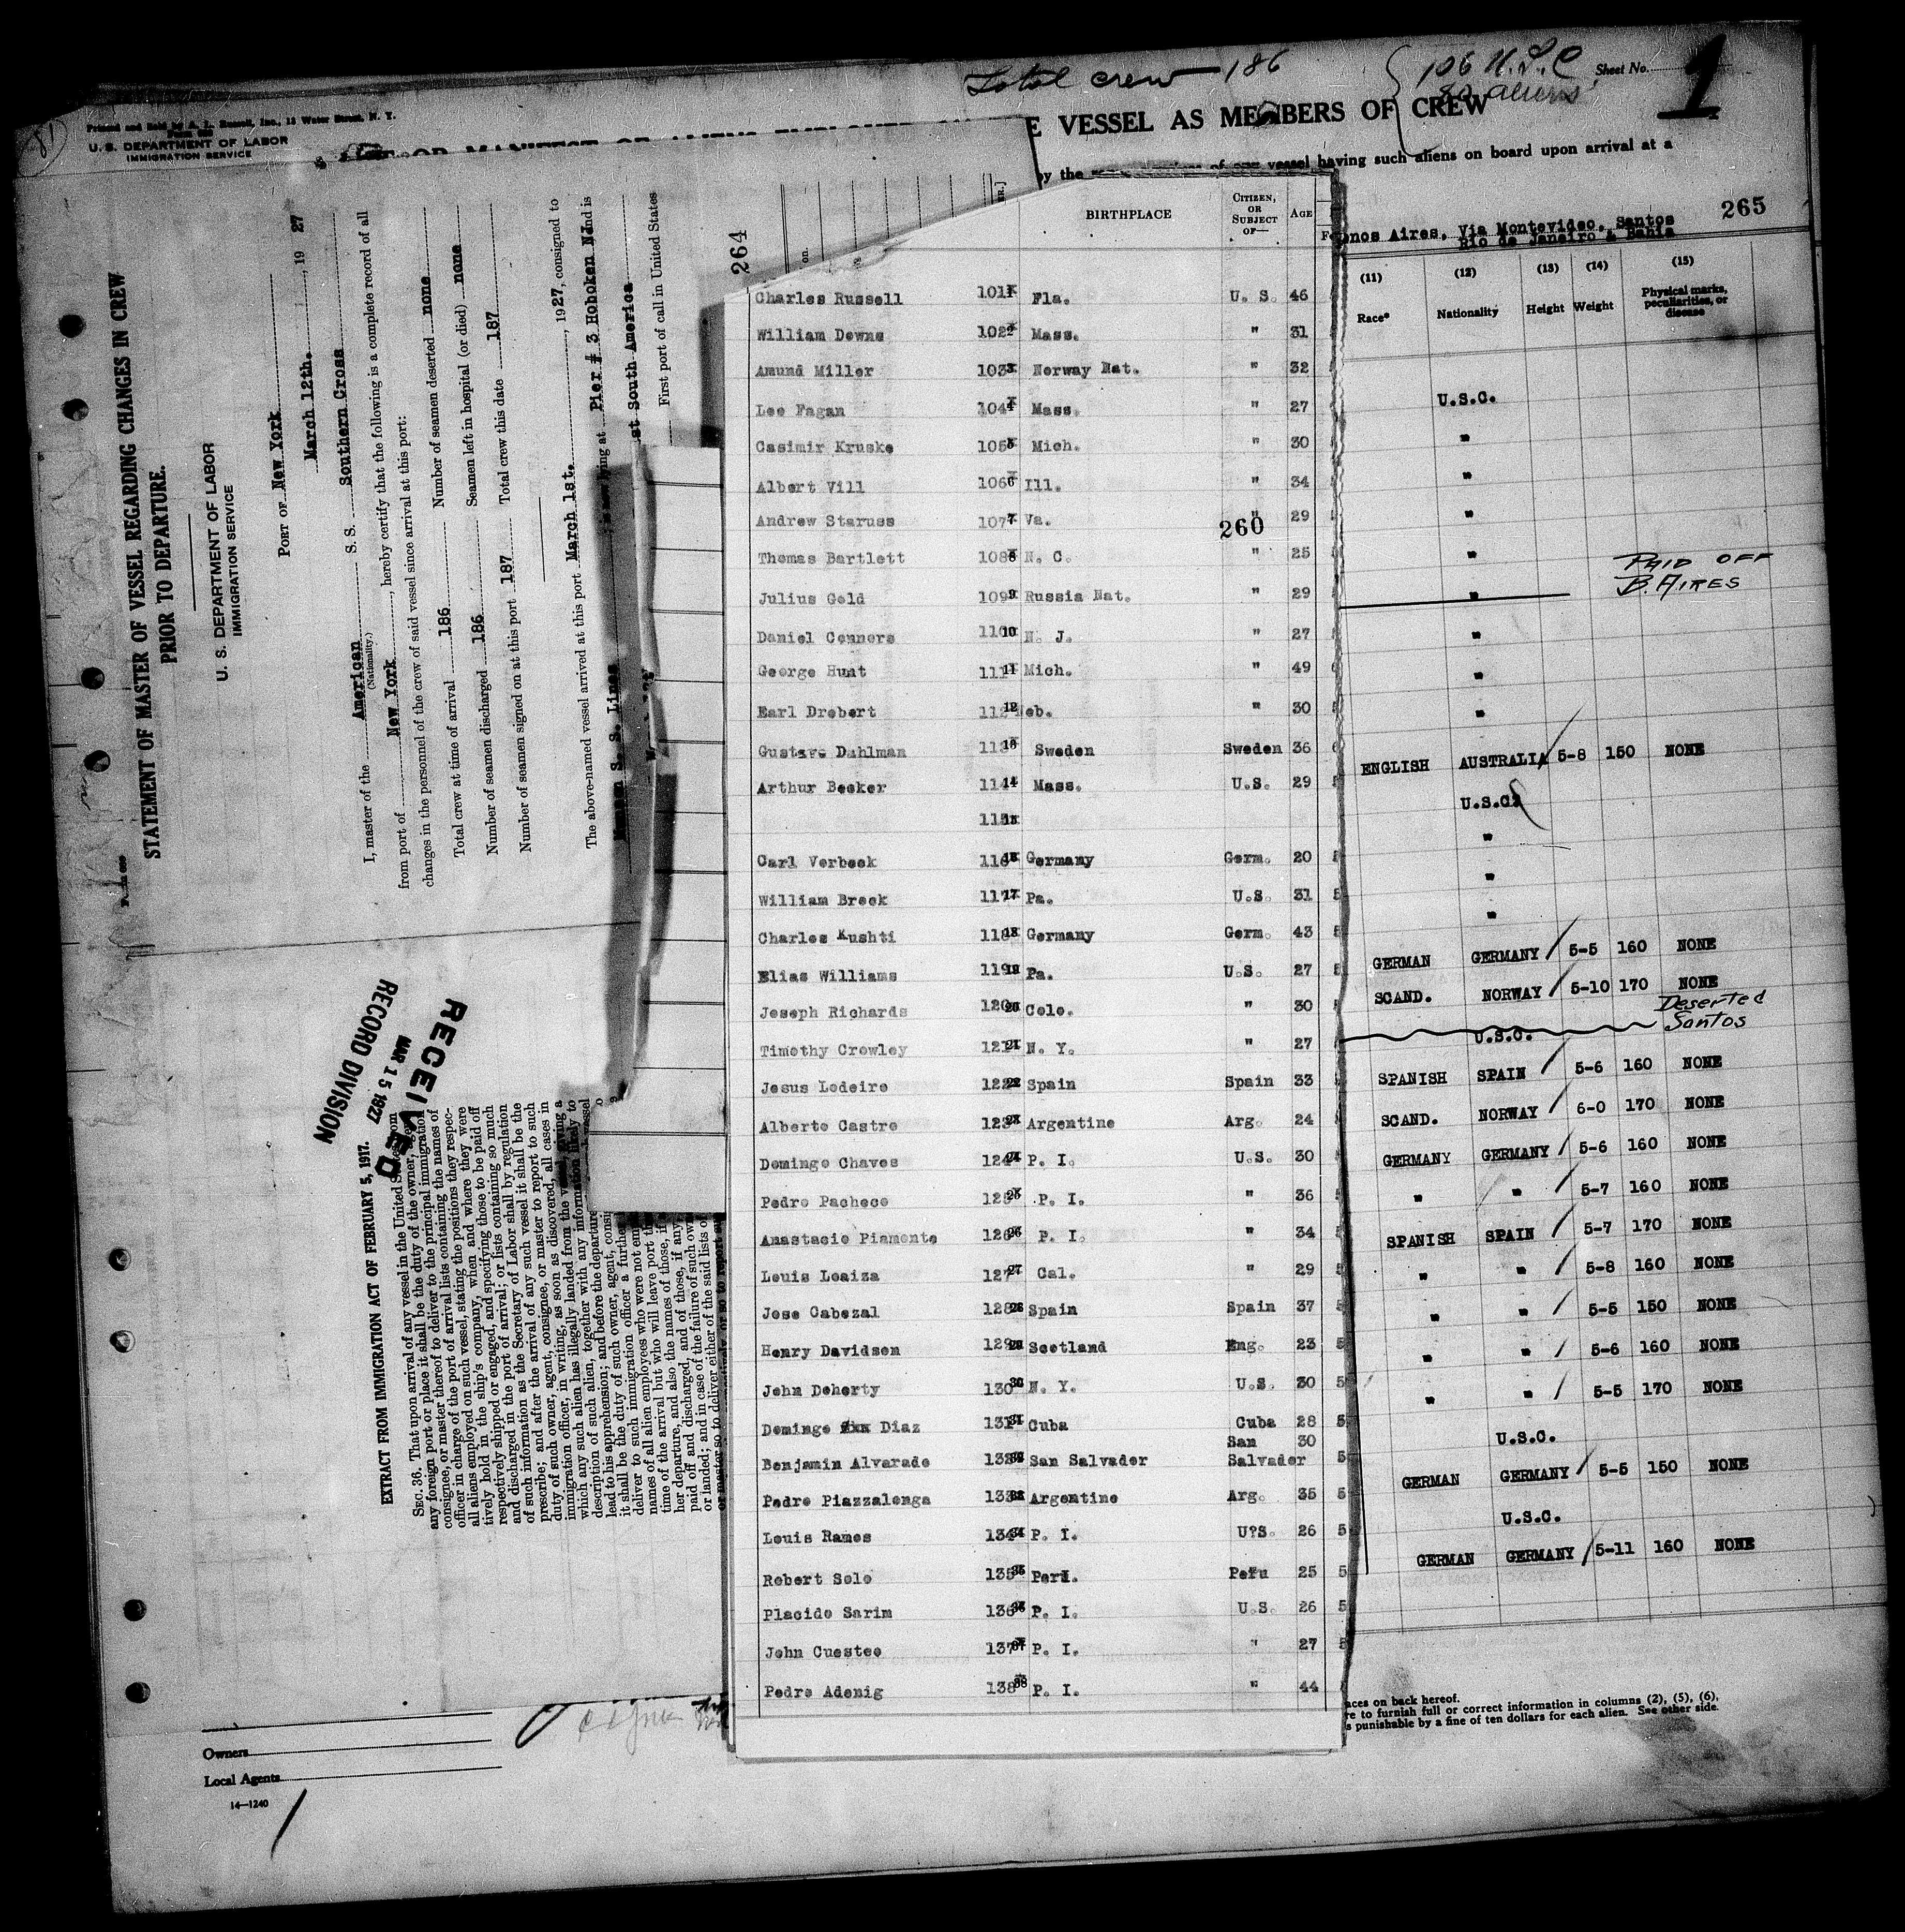 Total crew — 186
106 U.S.C
80 aliens
Sheet No.
1
81
Printed and Sold by A. L. Russell, Inc., 15 Water Street, N. Y.
U. S. DEPARTMENT OF LABOR
IMMIGRATION SERVICE
E VESSEL AS MEMBERS OF CREW
vessel having such aliens on board upon arrival at a
265
enos Aires, Via Montevideo, Santos
Rio de Janeiro & Bahia
STATEMENT OF MASTER OF VESSEL REGARDING CHANGES IN CREW
PRIOR TO DEPARTURE.
U. S. DEPARTMENT OF LABOR
IMMIGRATION SERVICE
PORT OF New York
March 12th. , 19 27
I, master of the American S. S. Southern Cross
(Nationality.)
from port of New York , hereby certify that the following is a complete record of all
changes in the personnel of the crew of said vessel since arrival at this port:
Total crew at time of arrival 186 Number of seamen deserted none
Number of seamen discharged 186 Seamen left in hospital (or died) none
Number of seamen signed on at this port 187 Total crew this date 187
The above-named vessel arrived at this port March 1st. , 1927, consigned to
Munson S. S. Lines lying at Pier # 3 Hoboken NJ and is
st South America
First port of call in United States
264
RECEIVED
MAR 15 1927
RECORD DIVISION
EXTRACT FROM IMMIGRATION ACT OF FEBRUARY 5, 1917.
SEC. 36. That upon arrival of any vessel in the United States from
any foreign port or place it shall be the duty of the owner, agent,
consignee, or master thereof to deliver to the principal immigration
officer in charge of the port of arrival lists containing the names of
all aliens employed on such vessel, stating the positions they respec-
tively hold in the ship's company, when and where they were
respectively shipped or engaged, and specifying those to be paid off
and discharged in the port of arrival; or lists containing so much
of such information as the Secretary of Labor shall by regulation
prescribe; and after the arrival of any such vessel it shall be the
duty of such owner, agent, consignee, or master to report to such
immigration officer, in writing, as soon as discovered, all cases in
which any such alien has illegally landed from the vessel, giving a
description of such alien, together with any information likely to
lead to his apprehension; and before the departure
it shall be the duty of such owner, agent, consi
deliver to such immigration officer a further
names of all alien employees who were not emp
time of the arrival but who will leave port th
her departure, and also the names of those, if
paid off and discharged, and of those, if any
or landed; and in case of the failure of such own
or master so to deliver either of the said lists of
BIRTHPLACE CITIZEN, OR SUBJECT OF— AGE
Charles Russell 101 Fla. U. S. 46
William Downs 102 Mass. " 31
Amund Miller 103 Norway Nat. " 32
Lee Fagan 104 Mass. " 27
Casimir Kruske 105 Mich. " 30
Albert Vill 106 Ill. " 34
Andrew Staruss 107 Va. " 29
260
Thomas Bartlett 108 N. C. " 25
Julius Gold 109 Russia Nat. " 29
Daniel Conners 110 N. J. " 27
George Hunt 111 Mich. " 49
Earl Drebert 112 eb. " 30
Gustave Dahlman 113 Sweden Sweden 36
Arthur Becker 114 Mass. U.S. 29
115
Carl Verbeek 116 Germany Germ. 20
William Breek 117 Pa. U.S. 31
Charles Kushti 118 Germany Germ. 43
Elias Williams 119 Pa. U.S. 27
Joseph Richards 120 Colo. " 30
Timothy Crowley 121 N. Y. " 27
Jesus Lodeire 122 Spain Spain 33
Alberto Castro 123 Argentine Arg. 24
Domingo Chaves 124 P. I. U.S. 30
Pedro Pacheco 125 P. I. " 36
Anastacio Piamonte 126 P. I. " 34
Louis Loaiza 127 Cal. " 29
Jose Cabezal 128 Spain Spain 37
Henry Davidson 129 Scotland Eng. 23
John Doherty 130 N. Y. U.S. 30
Domingo Diaz 131 Cuba Cuba 28
Benjamin Alvarado 132 San Salvador San Salvador 30
Pedro Piazzalonga 133 Argentine Arg. 35
Louis Ramos 134 P. I. U?S. 26
Robert Solo 135 Peru. Peru 25
Placido Sarim 136 P. I. U.S. 26
John Cuestee 137 P. I. " 27
Pedro Adenig 138 P. I. " 44
(11) (12) (13) (14) (15)
Race* Nationality Height Weight Physical marks, peculiarities, or disease
U.S.C.
"
"
"
"
PAID OFF
B. AIRES
"
"
"
"
ENGLISH AUSTRALIA 5-8 150 NONE
U.S.C.
"
"
"
GERMAN GERMANY 5-5 160 NONE
SCAND. NORWAY 5-10 170 NONE
Deserted
Santos
U.S.C.
SPANISH SPAIN 5-6 160 NONE
SCAND. NORWAY 6-0 170 NONE
GERMANY GERMANY 5-6 160 NONE
" " 5-7 160 NONE
SPANISH SPAIN 5-7 170 NONE
" " 5-8 160 NONE
" " 5-5 150 NONE
" " 5-6 160 NONE
" " 5-5 170 NONE
U.S.C.
GERMAN GERMANY 5-5 150 NONE
U.S.C.
GERMAN GERMANY 5-11 160 NONE
aces on back hereof.
re to furnish full or correct information in columns (2), (5), (6),
s punishable by a fine of ten dollars for each alien. See other side.
Owners
Local Agents
14—1240